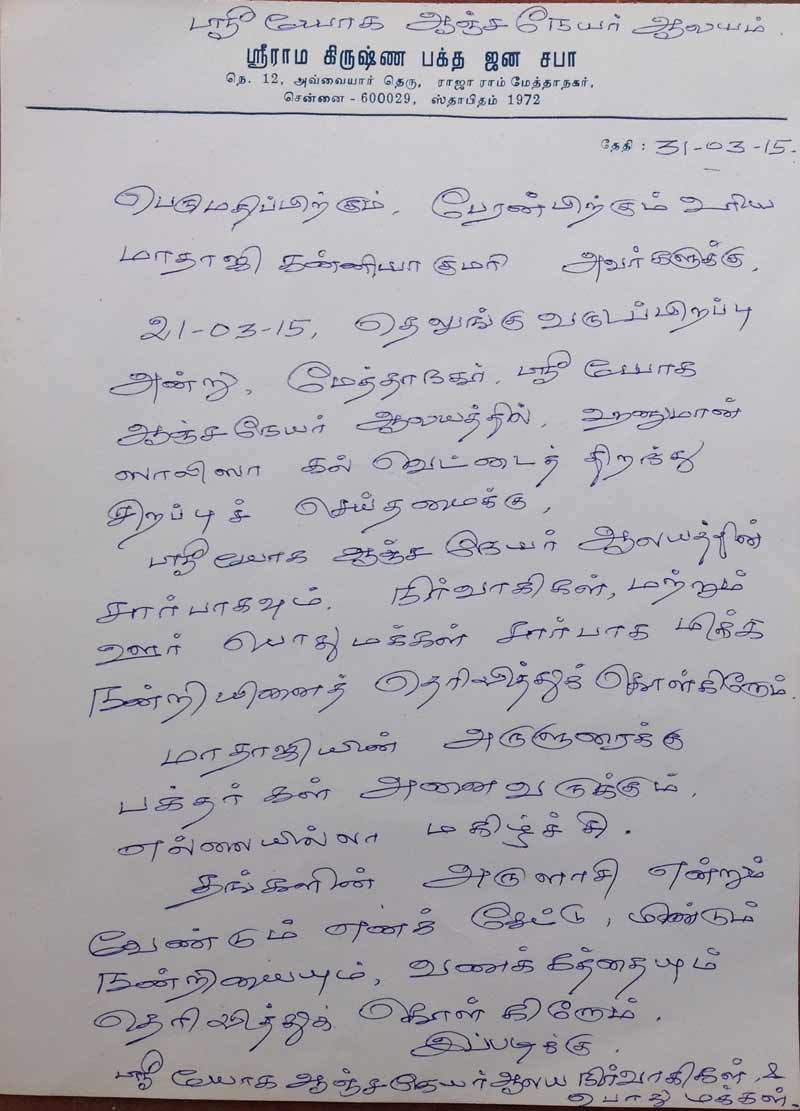 ஸ்ரீ யோக ஆஞ்சநேயர் ஆலயம்.
ஸ்ரீராம கிருஷ்ண பக்த ஜன சபா
நெ. 12, அவ்வையார் தெரு, ராஜா ராம் மேத்தாநகர்,
சென்னை - 600029, ஸ்தாபிதம் 1972
தேதி : 31-03-15.
பெருமதிப்பிற்கும், பேரன்பிற்கும் உரிய
மாதாஜி கன்னியாகுமரி அவர்களுக்கு,
21-03-15, தெலுங்கு வருடப்பிறப்பு
அன்று, மேத்தாநகர், ஸ்ரீ யோக
ஆஞ்சநேயர் ஆலயத்தில், ஹனுமான்
ஸாலிஸா கல் வெட்டைத் திறந்து
சிறப்புச் செய்தமைக்கு,
ஸ்ரீ யோக ஆஞ்சநேயர் ஆலயத்தின்
சார்பாகவும். நிர்வாகிகள், மற்றும்
ஊர் பொதுமக்கள் சார்பாக மிக்க
நன்றியினைத் தெரிவித்துக் கொள்கிறோம்.
மாதாஜியின் அருளுரைக்கு
பக்தர்கள் அனைவருக்கும்,
எல்லையில்லா மகிழ்ச்சி.
தங்களின் அருளாசி என்றும்
வேண்டும் எனக் கேட்டு, மீண்டும்
நன்றியையும், வணக்கத்தையும்
தெரிவித்துக் கொள்கிறோம்.
இப்படிக்கு.
ஸ்ரீ யோக ஆஞ்சநேயர் ஆலய நிர்வாகிகள், &
பொதுமக்கள்.